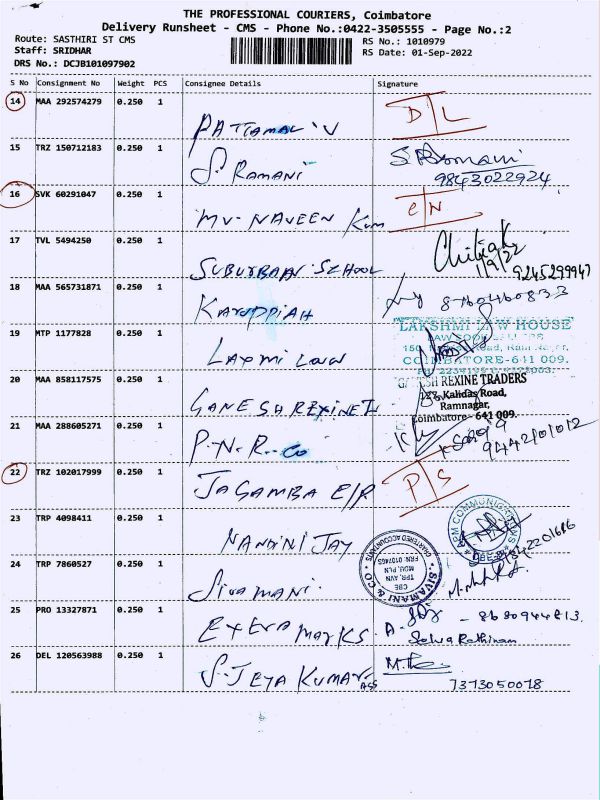 THE PROFESSIONAL COURIERS, Coimbatore
Delivery Runsheet - CMS - Phone No.:0422-3505555 - Page No.:2
Route: SASTHIRI ST CMS
RS No.: 1010979
Staff: SRIDHAR
RS Date: 01-Sep-2022
DRS No.: DCJB101097902
S No Consignment No Weight PCS Consignee Details Signature
14 MAA 292574279 0.250 1
PATTAMAL V D L
15 TRZ 150712183 0.250 1
S. RAMANI S. Ramani
9843022924
16 SVK 60291047 0.250 1
MV. NAVEEN KUM C/N
17 TVL 5494250 0.250 1
1/9/22
SUBURBAN SCHOOL 9245299947
18 MAA 565731871 0.250 1
KARUPPIAH 8760460833
19 MTP 1177828 0.250 1
LAKSHMI LAW HOUSE
LAXMI LAW
COIMBATORE-641 009.
20 MAA 858117575 0.250 1
REXINE TRADERS
Kalidas Road,
Ramnagar,
GANESH REXINE T Coimbatore - 641 009.
21 MAA 288605271 0.250 1
P.N.R. Co 9442101012
22 TRZ 102017999 0.250 1
JAGAMBA E/R P S
23 TRP 4098411 0.250 1
NANDINI JAY
24 TRP 7860527 0.250 1
SIVAMANI & CO
CHARTERED ACCOUNTANTS
Sivamani.
25 PRO 13327871 0.250 1
EXTRA MARKS. A.
Selva Rathinam
26 DEL 120563988 0.250 1
S. JEYA KUMAR
7373050078